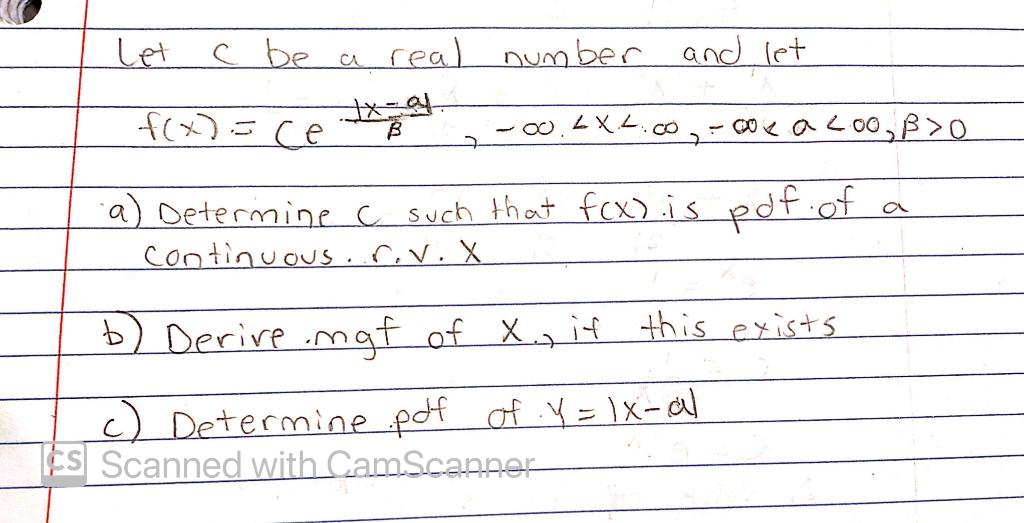 Let c be a real number and let
f(x) = Ce^{|x-a|/β}, -∞ < x < ∞, -∞ < a < ∞, β > 0
a) Determine c such that f(x) is pdf of a
continuous r.v. X
b) Derive mgf of X, if this exists
c) Determine pdf of Y = |x-a|
CS Scanned with CamScanner